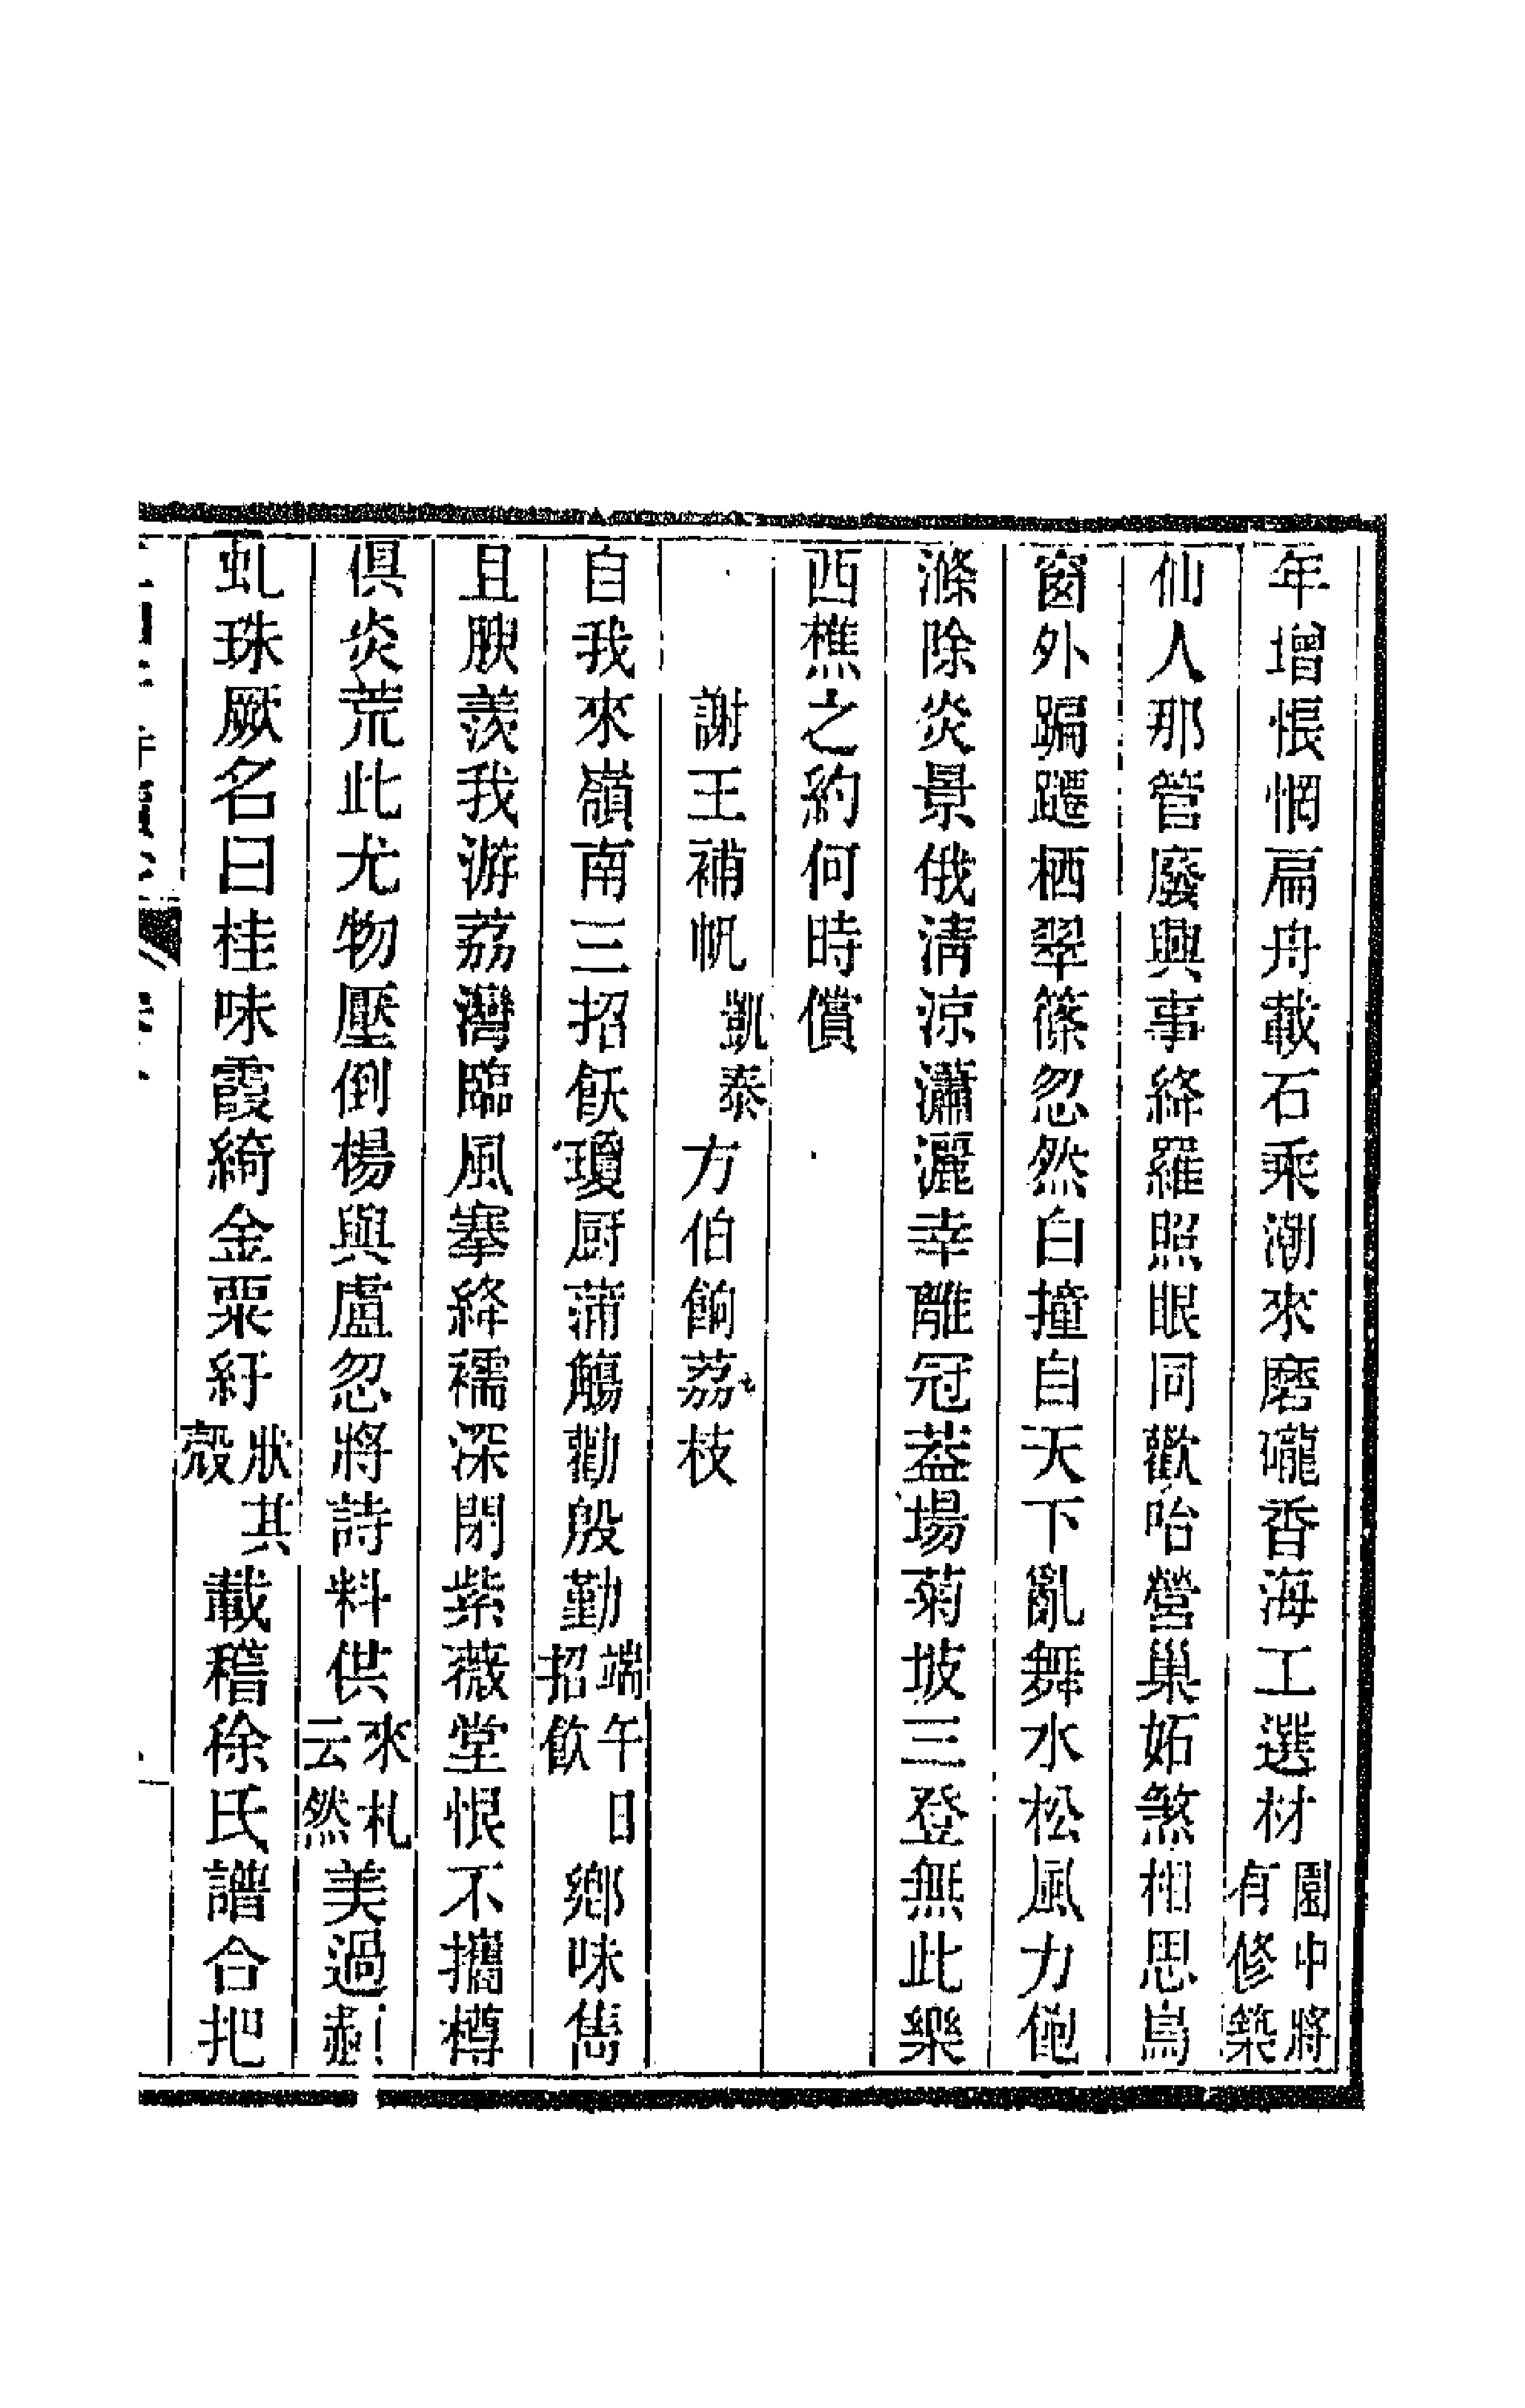 年增悵惘扁舟載石乘潮來磨礲香海工選材園中將有修築
仙人那管廢興事絳羅照眼同歡咍營巢妬煞相思鳥
窗外蹁躚栖翠篠忽然白撞自天下亂舞水松風力飽
滌除炎景俄淸涼瀟灑幸離冠葢場菊坡三登無此樂
西樵之約何時償
謝王補帆凱泰方伯餉荔枝
自我來嶺南三招飫瓊厨蒲觴勸殷勤端午日招飮鄉味雋
且腴羨我游荔灣臨風搴絳襦深閉紫薇堂恨不攜樽
俱炎荒此尤物壓倒楊與盧忽將詩料供來札云然美過頳
虬珠厥名曰桂味霞綺金粟紆狀其殼載稽徐氏譜合把